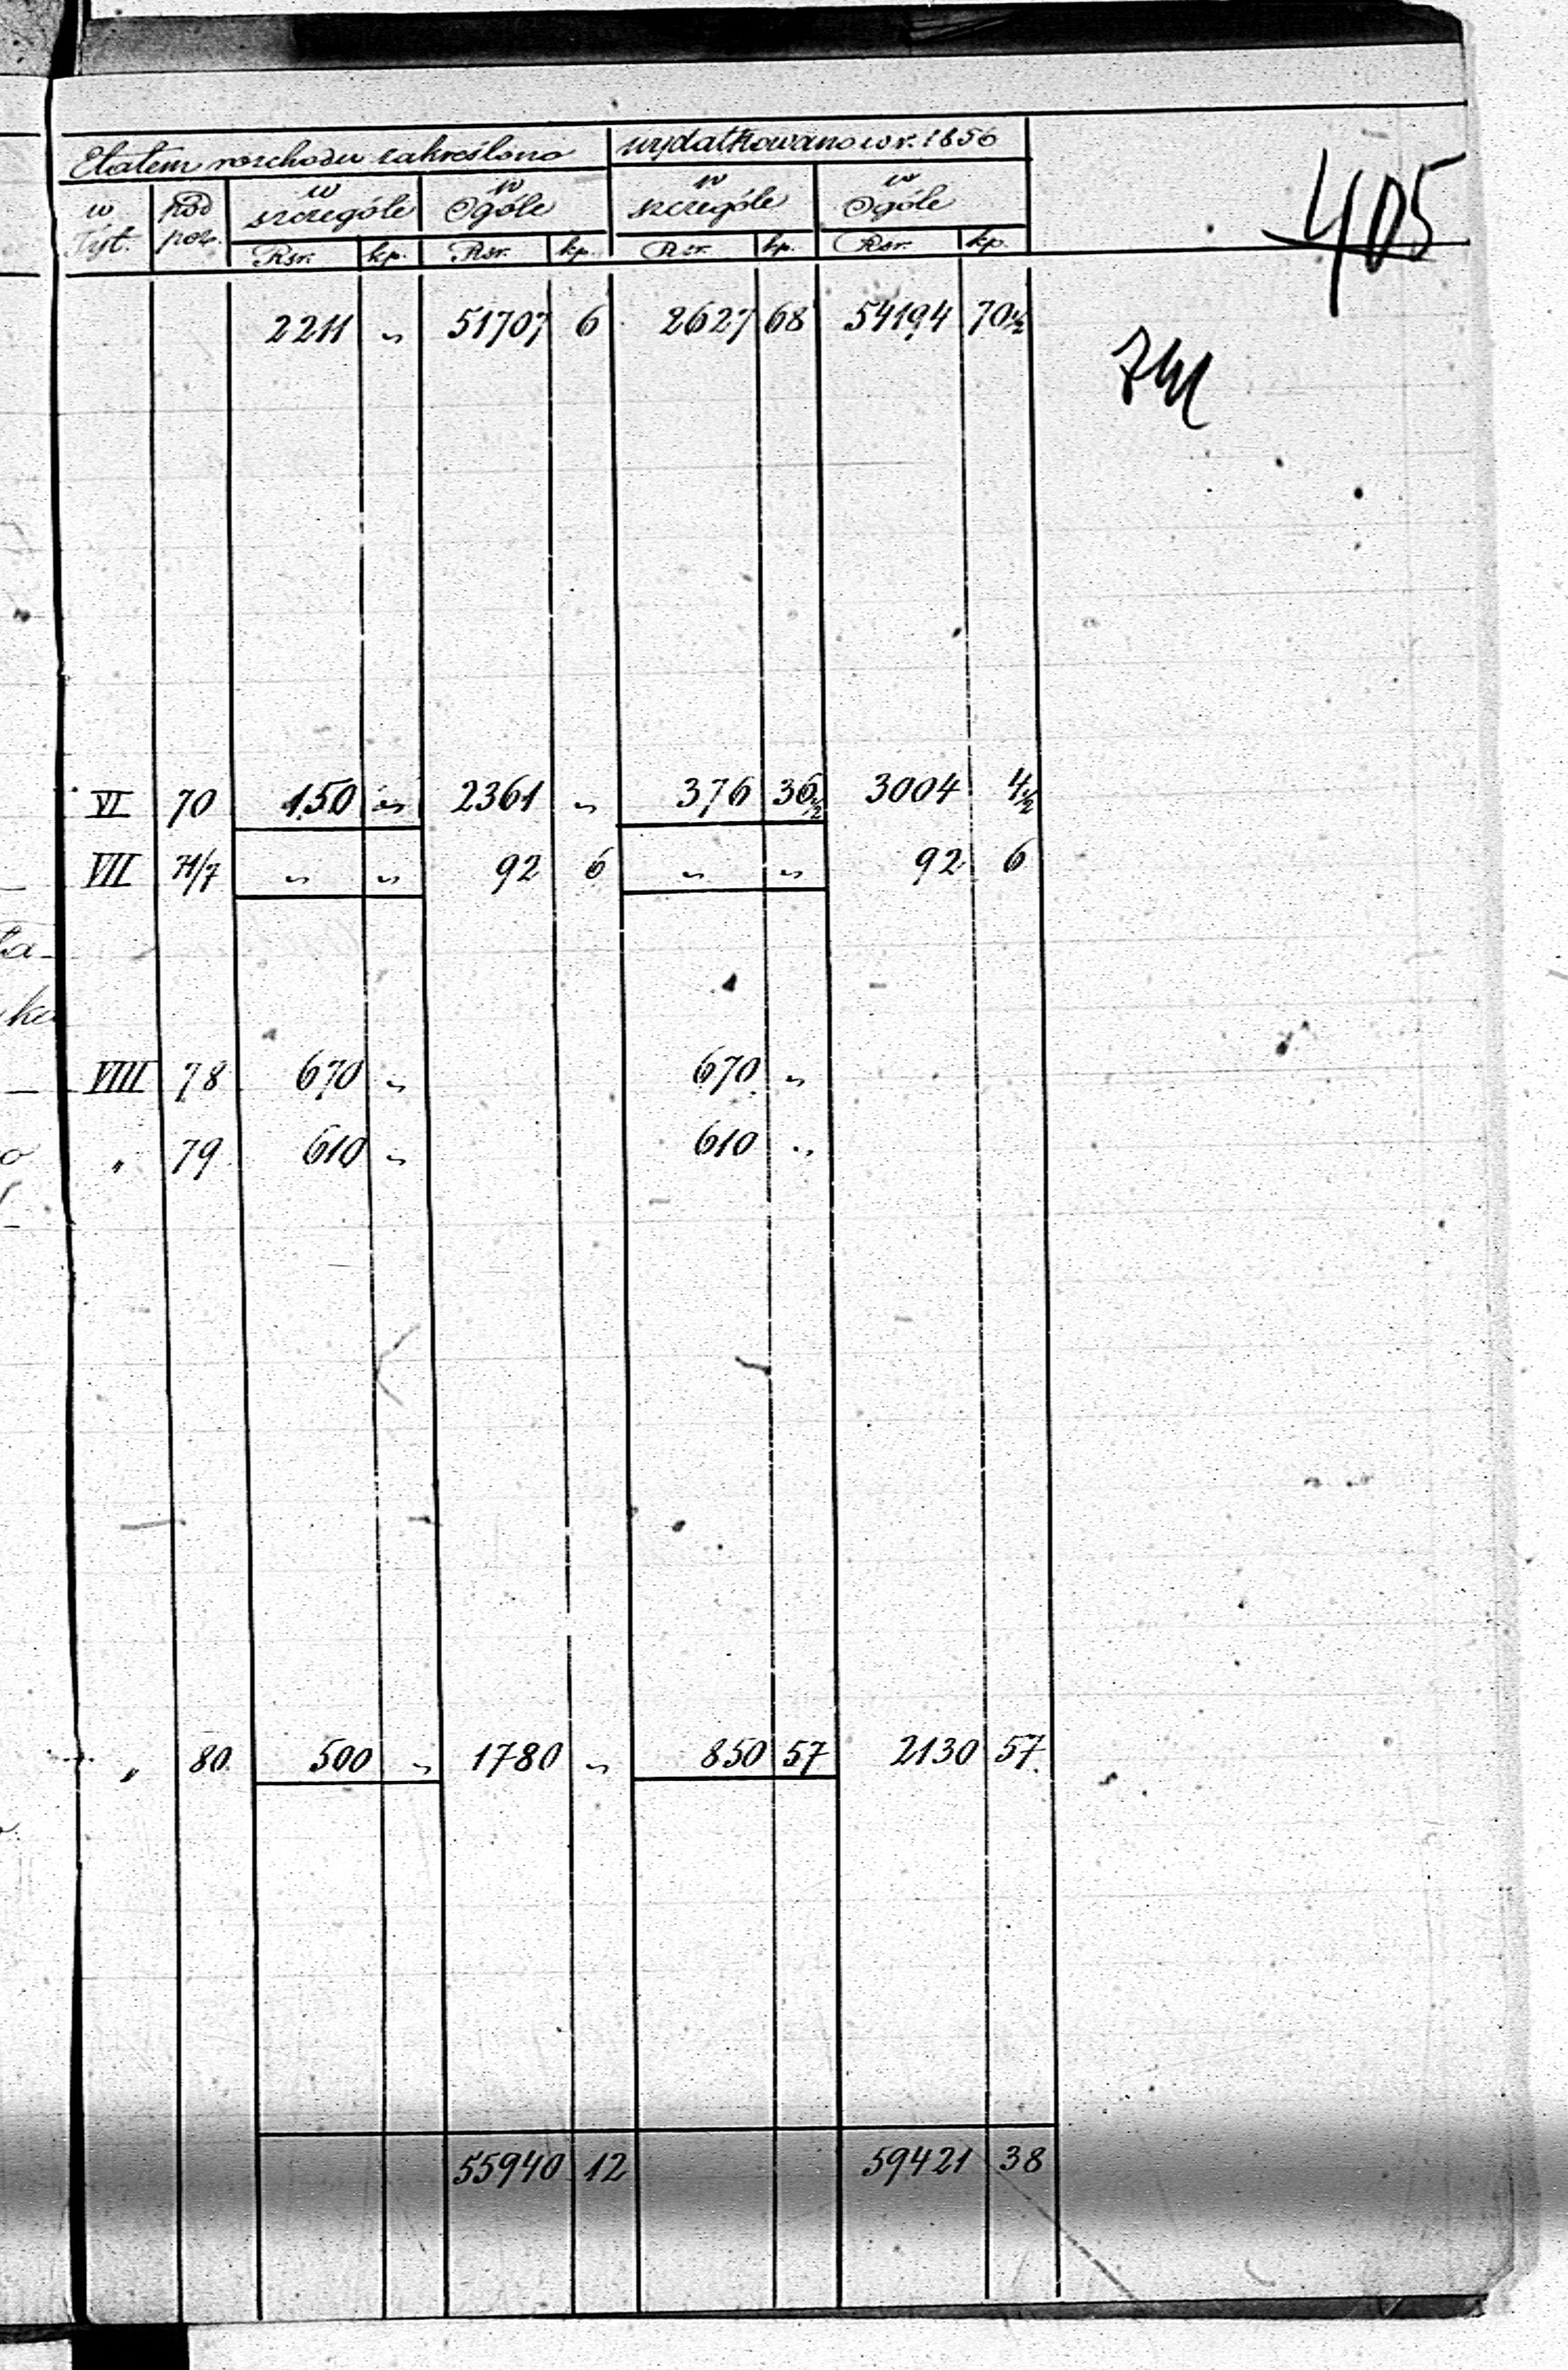 405
Etatem rozchodu zakreślono wydatkowano w r. 1856
w Tyt. pod poz. w szczególe w Ogóle w szczególe w Ogóle
Rsr. kp. Rsr. kp. Rsr. kp. Rsr. kp.
2211 „ 51707 6 2627 68 54194 70 1/2
VI 70 150 „ 2361 „ 376 36 1/2 3004 4 1/2
VII 71/7 „ „ 92 6 „ „ 92 6
VIII 78 670 „ 670 „
„ 79 610 „ 610 „
„ 80 500 „ 1780 „ 850 57 2130 57
55940 12 59421 38